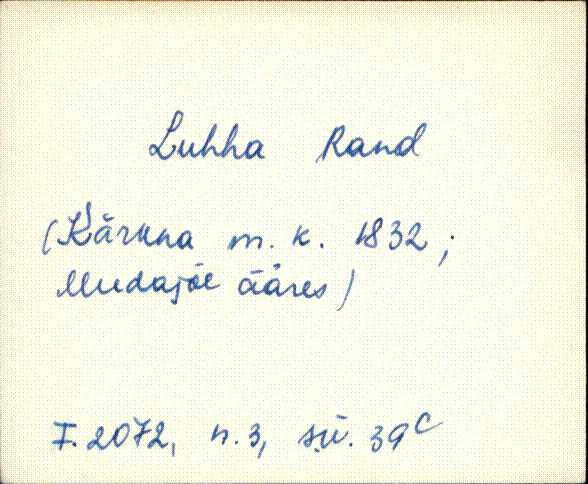 Luhha Rand
(Kärkna m. k. 1832;
Mudajõe ääres)
F. 2072, n. 3, sü. 39c